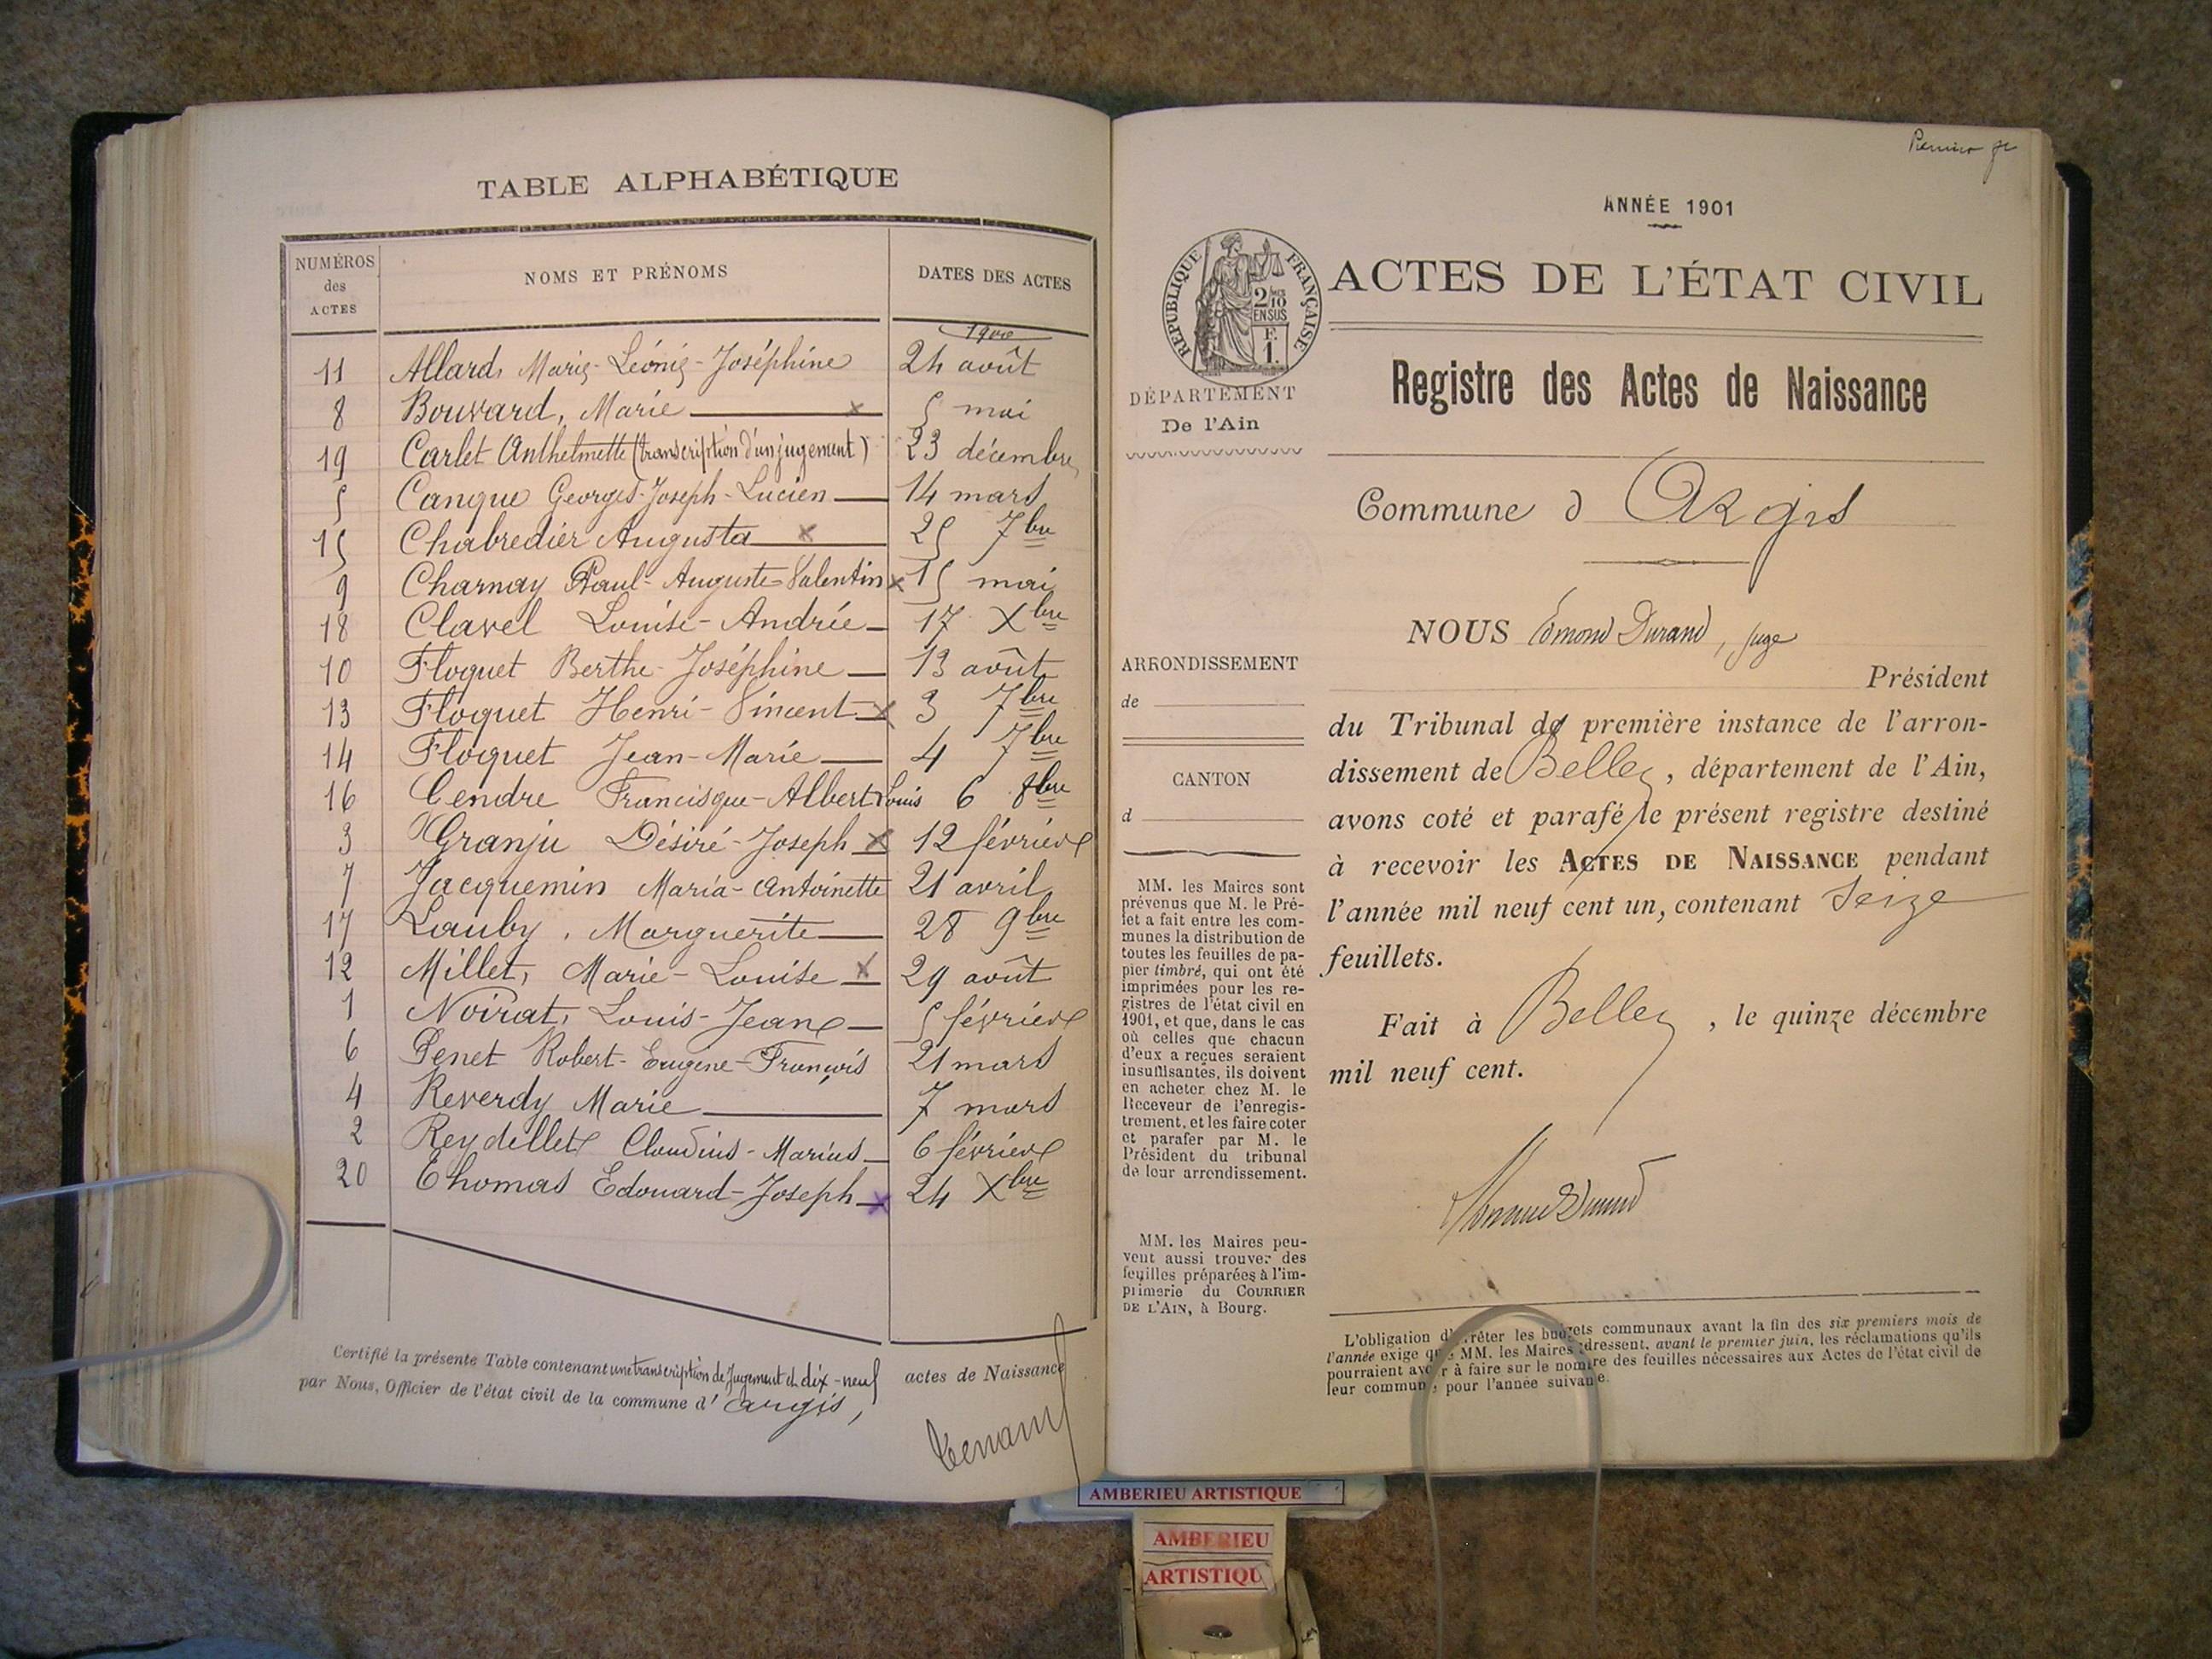 TABLE ALPHABÉTIQUE
NUMÉROS des ACTES
NOMS ET PRÉNOMS
DATES DES ACTES
1900
11 Allard, Marie-Léonie-Joséphine 24 août
8 Bouvard, Marie x 5 mai
19 Carlet Anthelmette (transcription d'un jugement) 23 décembre
5 Canque Georges-Joseph-Lucien 14 mars
15 Chabredier Augusta x 25 7bre
9 Charnay Paul-Auguste-Valentin x 15 mai
18 Clavel Louise-Andrée 17 Xbre
10 Floquet Berthe-Joséphine 13 août
13 Floquet Henri-Vincent x 3 7bre
14 Floquet Jean-Marie 4 7bre
16 Gendre Francisque-Albert Louis 6 8bre
3 Granju Désiré-Joseph x 12 février
7 Jacquemin Maria-Antoinette 21 avril
17 Lauby, Marguerite 28 9bre
12 Millet, Marie-Louise x 29 août
1 Noirat, Louis-Jean 5 février
6 Penet Robert-Eugène-François 21 mars
4 Reverdy Marie 7 mars
2 Reydellet Claudius-Marius 6 février
20 Thomas Edouard-Joseph x 24 Xbre
Certifié la présente Table contenant une transcription de jugement et dix-neuf actes de Naissance
par Nous, Officier de l'état civil de la commune d' Argis,
Premier
ANNÉE 1901
ACTES DE L'ÉTAT CIVIL
RÉPUBLIQUE FRANÇAISE
2/10
EN SUS
F.
1.
DÉPARTEMENT
De l'Ain
Registre des Actes de Naissance
Commune d Argis
ARRONDISSEMENT
de
CANTON
d
MM. les Maires sont
prévenus que M. le Pré-
fet a fait entre les com-
munes la distribution de
toutes les feuilles de pa-
pier timbré, qui ont été
imprimées pour les re-
gistres de l'état civil en
1901, et que, dans le cas
où celles que chacun
d'eux a reçues seraient
insuffisantes, ils doivent
en acheter chez M. le
Receveur de l'enregis-
trement, et les faire coter
et parafer par M. le
Président du tribunal
de leur arrondissement.
MM. les Maires peu-
vent aussi trouver des
feuilles préparées à l'im-
primerie du COURRIER
DE L'AIN, à Bourg.
NOUS Edmond Durand, juge
Président
du Tribunal de première instance de l'arron-
dissement de Belley, département de l'Ain,
avons coté et parafé le présent registre destiné
à recevoir les ACTES DE NAISSANCE pendant
l'année mil neuf cent un, contenant Seize
feuillets.
Fait à Belley, le quinze décembre
mil neuf cent.
L'obligation d'arrêter les budgets communaux avant la fin des six premiers mois de
l'année exige que MM. les Maires adressent, avant le premier juin, les réclamations qu'ils
pourraient avoir à faire sur le nombre des feuilles nécessaires aux Actes de l'état civil de
leur commune, pour l'année suivante.
AMBERIEU ARTISTIQUE
AMBERIEU
ARTISTIQU